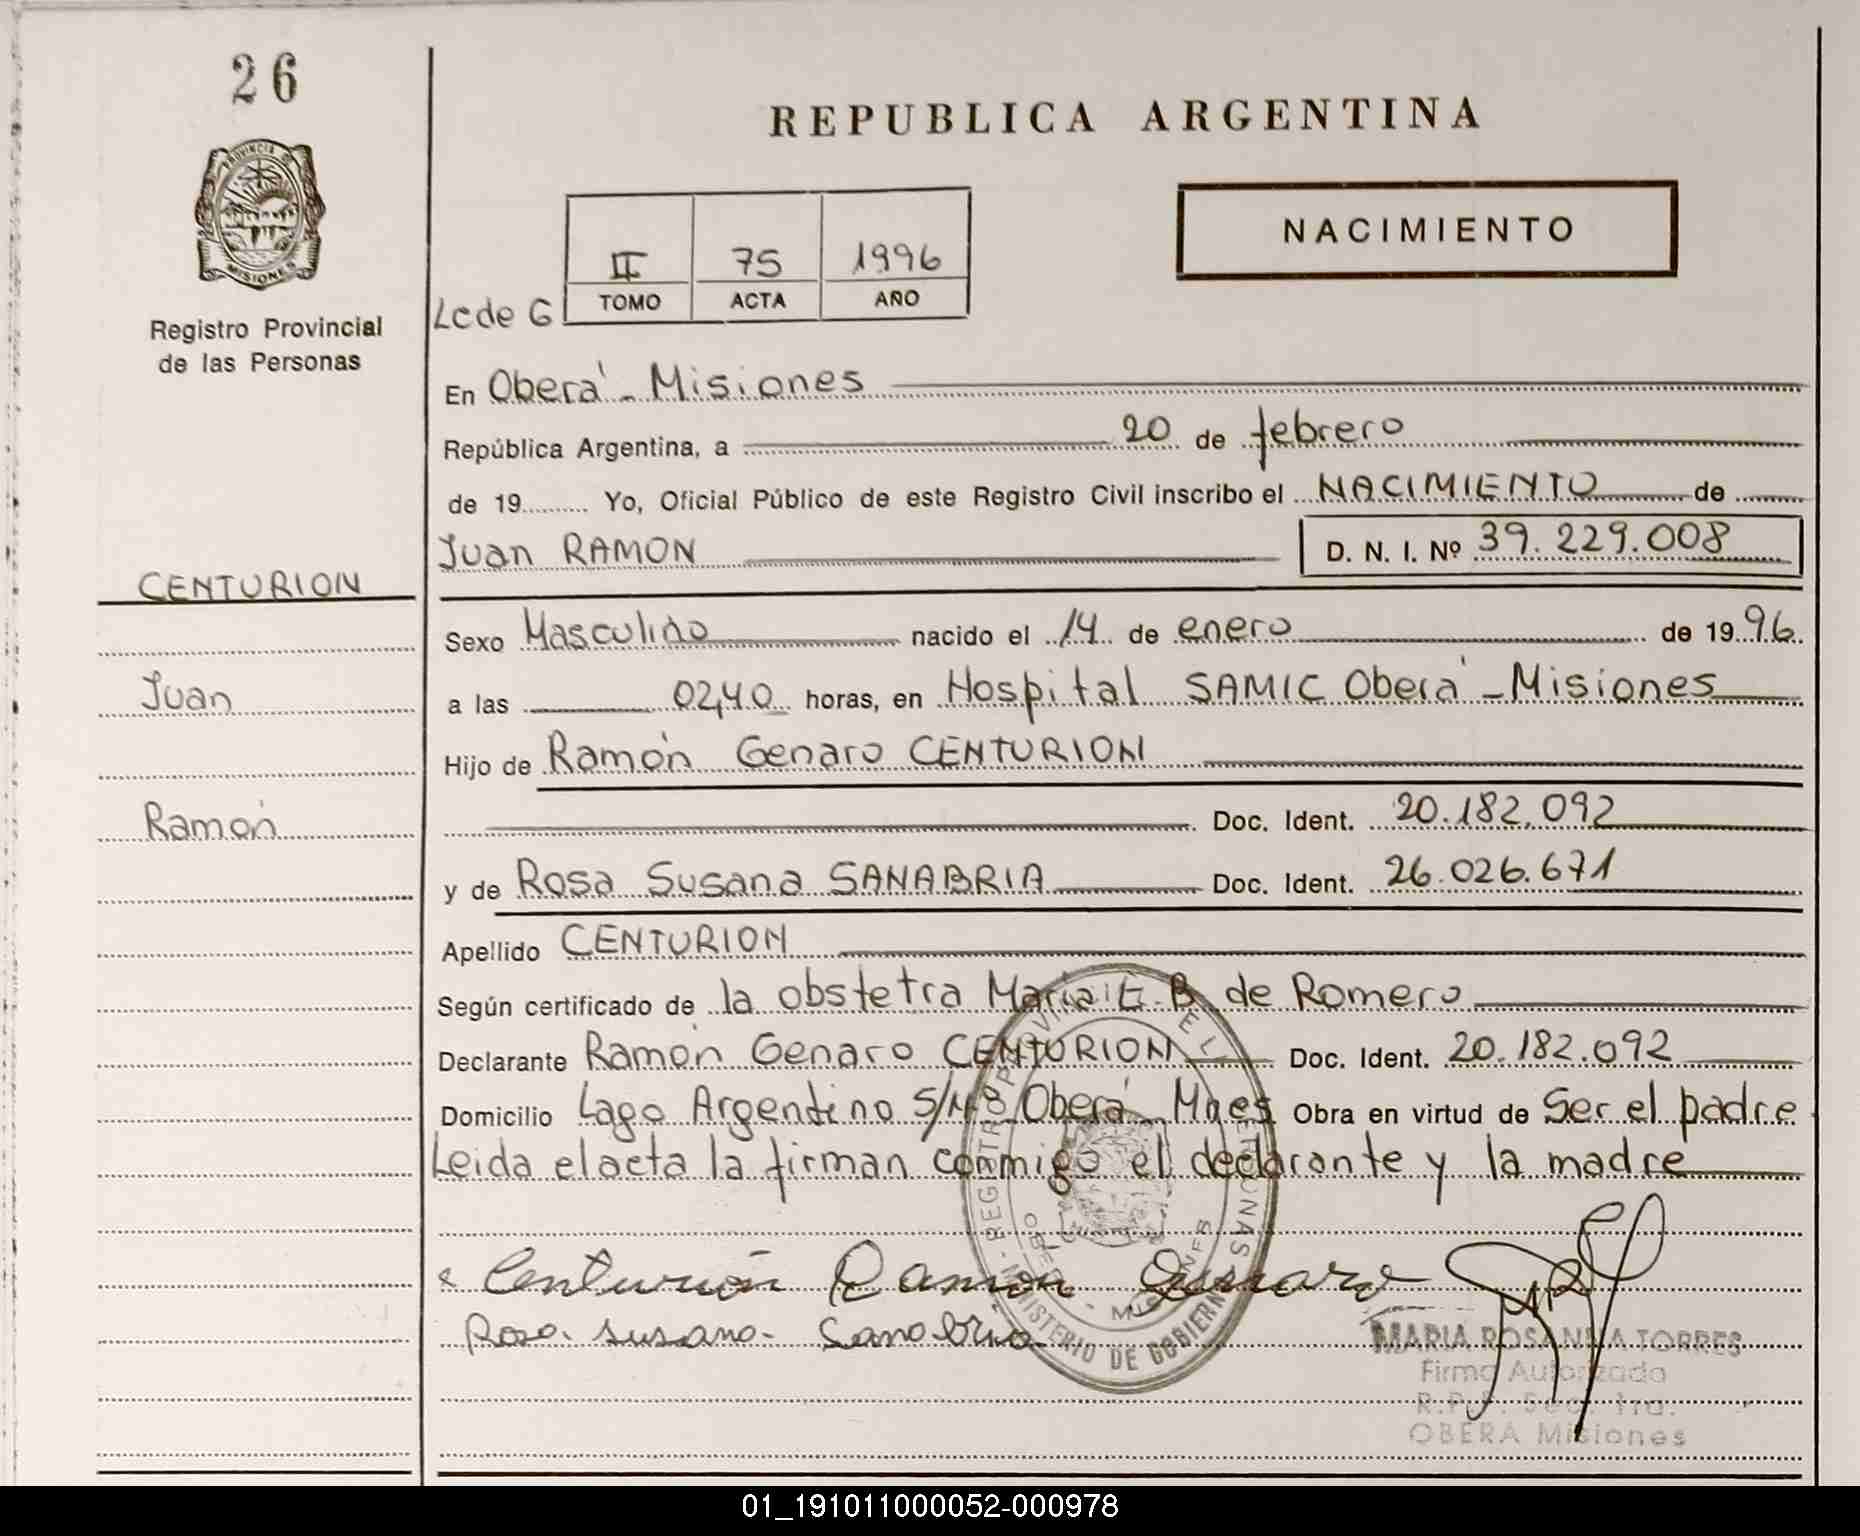 26
PROVINCIA DE
MISIONES
Registro Provincial
de las Personas
CENTURION
Juan
Ramón
REPUBLICA ARGENTINA
NACIMIENTO
II 75 1996
Lcde G TOMO ACTA AÑO
En Oberá - Misiones
República Argentina, a 20 de febrero
de 19 Yo, Oficial Público de este Registro Civil inscribo el NACIMIENTO de
Juan RAMON D. N. I. Nº 39.229.008
Sexo Masculino nacido el 14 de enero de 1996.
a las 02,40 horas, en Hospital SAMIC Oberá - Misiones
Hijo de Ramón Genaro CENTURION
Doc. Ident. 20.182.092
y de Rosa Susana SANABRIA Doc. Ident. 26.026.671
Apellido CENTURION
Según certificado de la obstetra María E. B de Romero
Declarante Ramón Genaro CENTURION Doc. Ident. 20.182.092
Domicilio Lago Argentino S/Nº Oberá Mnes Obra en virtud de Ser el padre
Leida el acta la firman conmigo el declarante y la madre
Centurión Ramon Genaro
Rosa Susana Sanabria
MARIA ROSANNA TORRES
Firma Autorizada
R.P.P. Sec. 1ra.
OBERA Misiones
MINISTERIO DE GOBIERNO
01_191011000052-000978